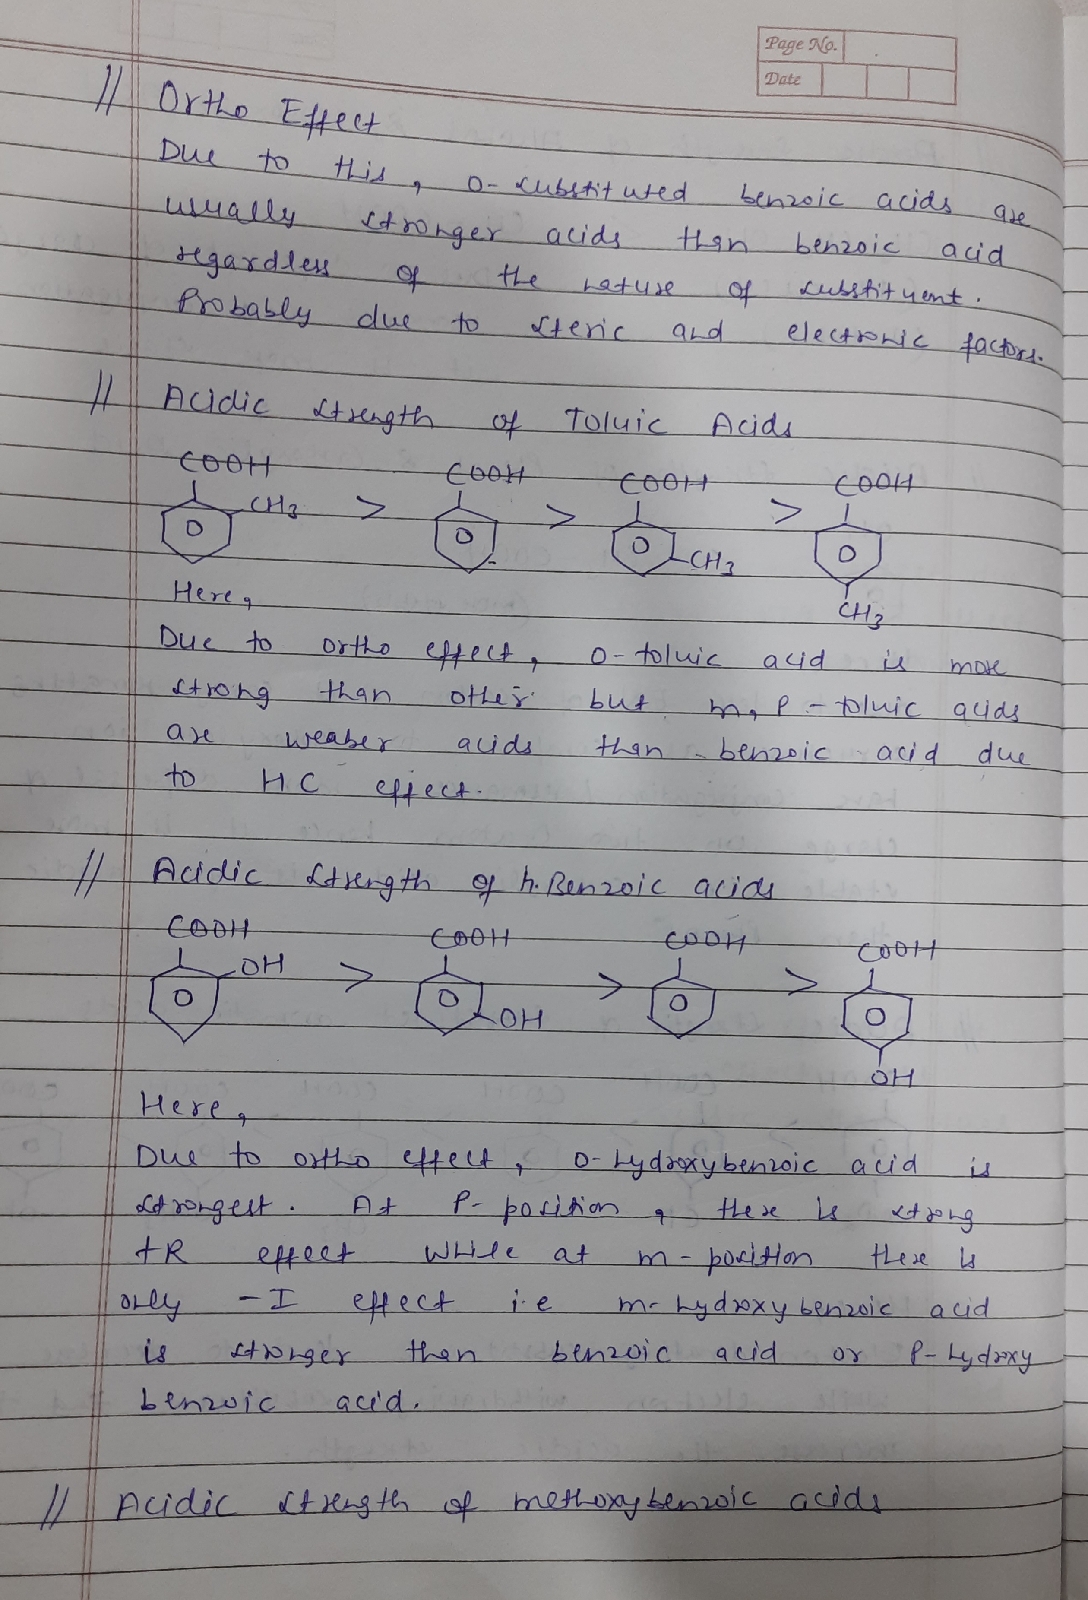 Page No.
Date
// Ortho Effect
Due to this, o-substituted benzoic acids are
usually stronger acids than benzoic acid
regardless of the nature of substituent.
Probably due to steric and electronic factors.
// Acidic strength of Toluic Acids
COOH COOH COOH COOH
CH3 > > >
CH3
CH3
Here,
Due to ortho effect, o-toluic acid is more
strong than other but m, p-toluic acids
are weaker acids than benzoic acid due
to HC effect.
// Acidic strength of h. Benzoic acids
COOH COOH COOH COOH
OH > > >
OH
OH
Here,
Due to ortho effect, o-hydroxybenzoic acid is
strongest. At p-position, there is strong
+R effect while at m-position there is
only -I effect i.e m-hydroxy benzoic acid
is stronger than benzoic acid or p-hydroxy
benzoic acid.
// Acidic strength of methoxybenzoic acids